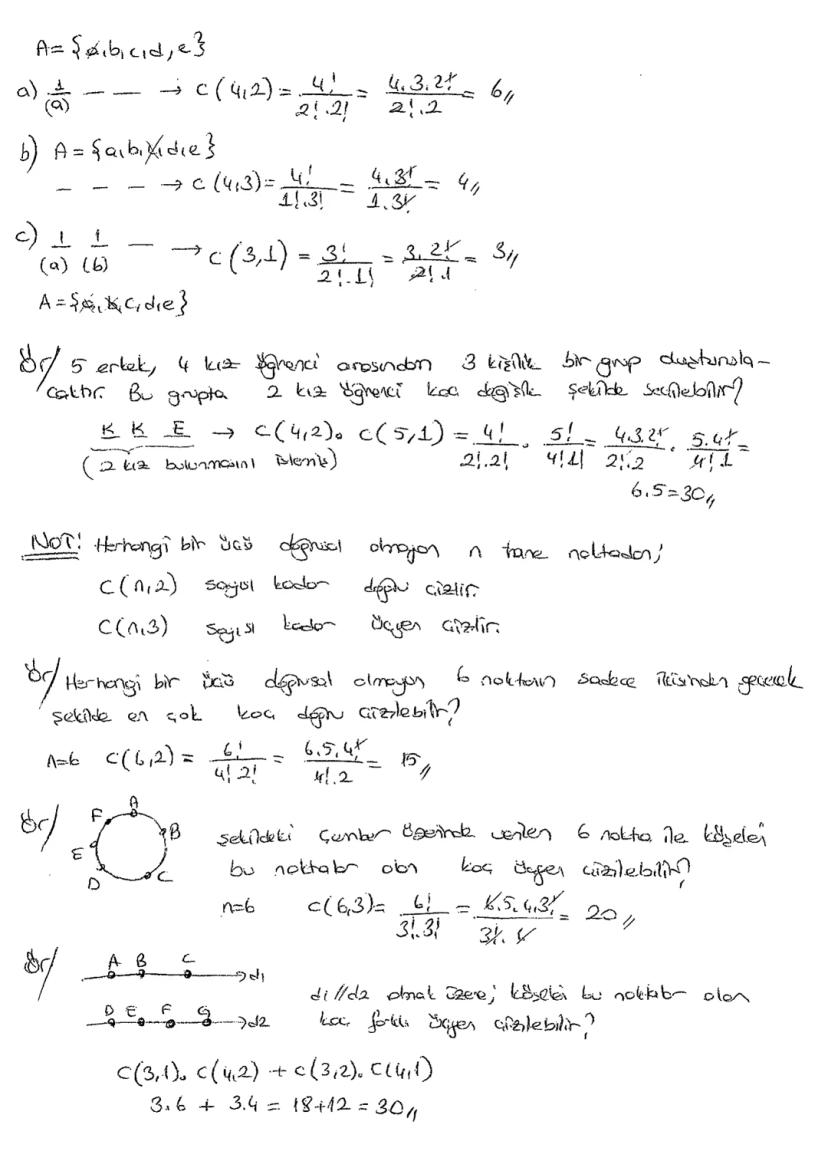 A = {a,b,c,d,e}
a) 1 (a) _ _ → C(4,2) = 4!/2!.2! = 4.3.2!/2!.2 = 6//
b) A = {a,b,c,d,e}
_ _ _ → C(4,3) = 4!/1!.3! = 4.3!/1.3! = 4//
c) 1 (a) 1 (b) _ → C(3,1) = 3!/2!.1! = 3.2!/2!.1 = 3//
A = {a,b,c,d,e}
Ör/ 5 erkek, 4 kız öğrenci arasından 3 kişilik bir grup oluşturula-
caktır. Bu grupta 2 kız öğrenci kaç değişik şekilde seçilebilir?
K K E → C(4,2). C(5,1) = 4!/2!.2! . 5!/4!.1! = 4.3.2!/2!.2 . 5.4!/4!.1 =
(2 kız bulunmasını istemiş)
6.5 = 30//
NOT! Herhangi bir üçü doğrusal olmayan n tane noktadan;
C(n,2) sayısı kadar doğru çizilir.
C(n,3) sayısı kadar üçgen çizilir.
Ör/ Herhangi bir üçü doğrusal olmayan 6 noktanın sadece ikisinden geçecek
şekilde en çok kaç doğru çizilebilir?
n=6 C(6,2) = 6!/4!.2! = 6.5.4!/4!.2 = 15//
Ör/ A B C D E F
Şekildeki çember üzerinde verilen 6 nokta ile köşeleri
bu noktalar olan kaç üçgen çizilebilir?
n=6 C(6,3) = 6!/3!.3! = 6.5.4.3!/3!.6 = 20//
Ör/ A B C d1
D E F G d2
d1//d2 olmak üzere; köşeleri bu noktalar olan
kaç farklı üçgen çizilebilir?
C(3,1). C(4,2) + C(3,2). C(4,1)
3.6 + 3.4 = 18+12 = 30//